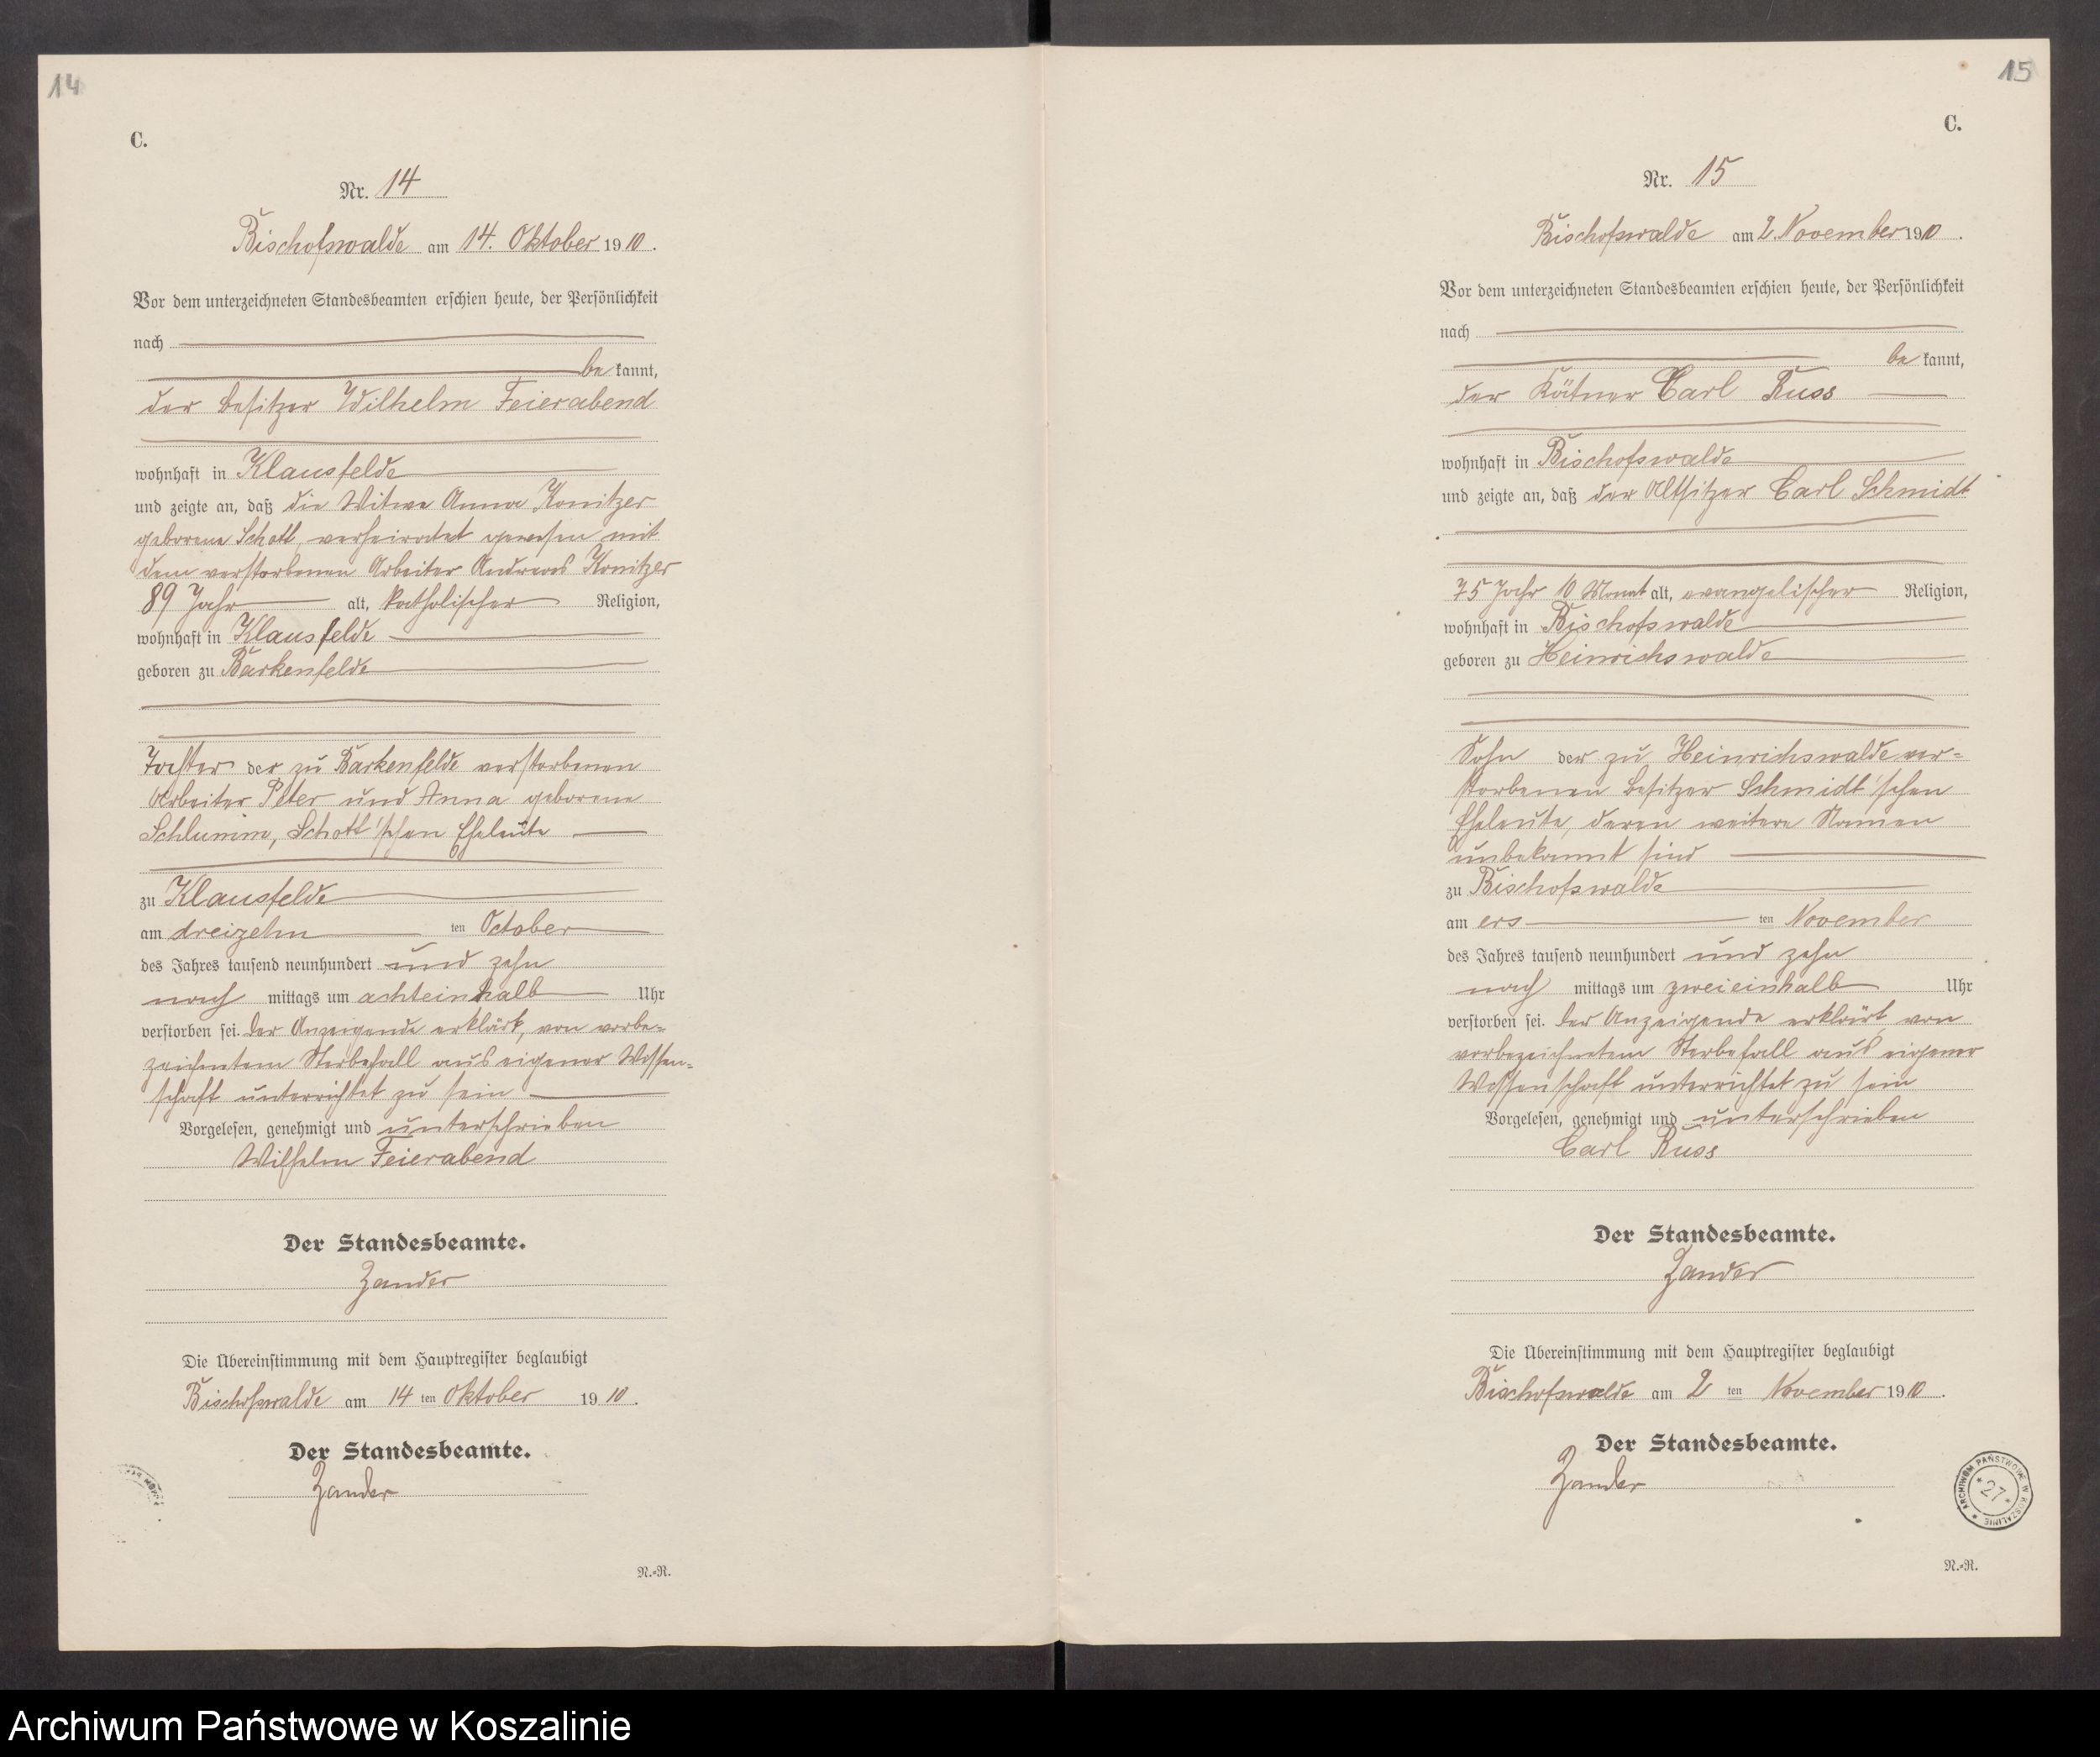 14
C.
Nr. 14
Bischofswalde am 14. Oktober 1910.
Vor dem unterzeichneten Standesbeamten erschien heute, der Persönlichkeit
nach
be kannt,
der Besitzer Wilhelm Feierabend
wohnhaft in Klausfelde
und zeigte an, daß die Witwe Anna Konitzer
geborene Schott, verheiratet gewesen mit
dem verstorbenen Arbeiter Andreas Konitzer
89 Jahr alt, katholischer Religion,
wohnhaft in Klausfelde
geboren zu Barkenfelde
Tochter der zu Barkenfelde verstorbenen
Arbeiter Peter und Anna geborene
Schlumm, Schott'schen Eheleute
zu Klausfelde
am dreizehn ten October
des Jahres tausend neunhundert und zehn
nach mittags um achteinhalb Uhr
verstorben sei. Der Anzeigende erklärt, von vorbe-
zeichnetem Sterbefall aus eigener Wissen-
schaft unterrichtet zu sein
Vorgelesen, genehmigt und unterschrieben
Wilhelm Feierabend
Der Standesbeamte.
Zander
Die Übereinstimmung mit dem Hauptregister beglaubigt
Bischofswalde am 14 ten Oktober 1910.
Der Standesbeamte.
Zander
N.-R.
15
C.
Nr. 15
Bischofswalde am 2. November 1910.
Vor dem unterzeichneten Standesbeamten erschien heute, der Persönlichkeit
nach
be kannt,
der Kätner Carl Russ
wohnhaft in Bischofswalde
und zeigte an, daß der Altsitzer Carl Schmidt
75 Jahr 10 Monat alt, evangelischer Religion,
wohnhaft in Bischofswalde
geboren zu Heinrichswalde
Sohn der zu Heinrichswalde ver-
storbenen Besitzer Schmidt'schen
Eheleute, deren weitere Namen
unbekannt sind
zu Bischofswalde
am ers ten November
des Jahres tausend neunhundert und zehn
nach mittags um zweieinhalb Uhr
verstorben sei. Der Anzeigende erklärt, von
vorbezeichnetem Sterbefall aus eigener
Wissenschaft unterrichtet zu sein
Vorgelesen, genehmigt und unterschrieben
Carl Russ
Der Standesbeamte.
Zander
Die Übereinstimmung mit dem Hauptregister beglaubigt
Bischofswalde am 2 ten November 1910.
Der Standesbeamte.
Zander
ARCHIWUM PAŃSTWOWE W KOSZALINIE
* 27 *
N.-R.
Archiwum Państwowe w Koszalinie